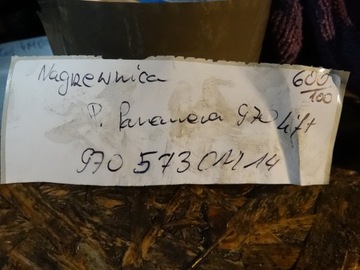 Nagrzewnica 600/100
P. Panamera 970 lift
970 573 01414